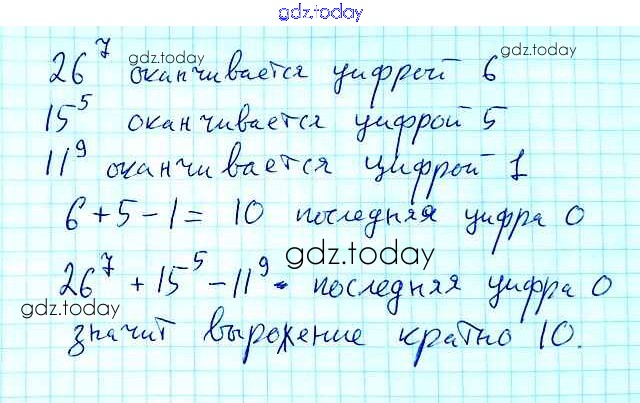 gdz.today
26⁷ оканчивается цифрой 6
gdz.today
gdz.today
15⁵ оканчивается цифрой 5
11⁹ оканчивается цифрой 1
6 + 5 - 1 = 10 последняя цифра 0
gdz.today
26⁷ + 15⁵ - 11⁹ - последняя цифра 0
gdz.today
gdz.today
значит выражение кратно 10.